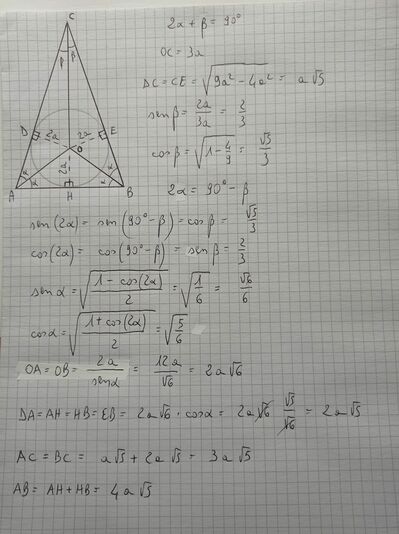 C
2α + β = 90°
OC = 3a
β β
DC = CE = √(9a² - 4a²) = a√5
sen β = 2a/3a = 2/3
cos β = √(1 - 4/9) = √5/3
D 2a 2a E
O
2a
α α α α
A H B
2α = 90° - β
sen(2α) = sen(90° - β) = cos β = √5/3
cos(2α) = cos(90° - β) = sen β = 2/3
sen α = √((1 - cos(2α))/2) = √(1/6) = √6/6
cos α = √((1 + cos(2α))/2) = √(5/6)
OA = OB = 2a/sen α = 12a/√6 = 2a√6
DA = AH = HB = EB = 2a√6 · cos α = 2a√6 √5/√6 = 2a√5
AC = BC = a√5 + 2a√5 = 3a√5
AB = AH + HB = 4a√5